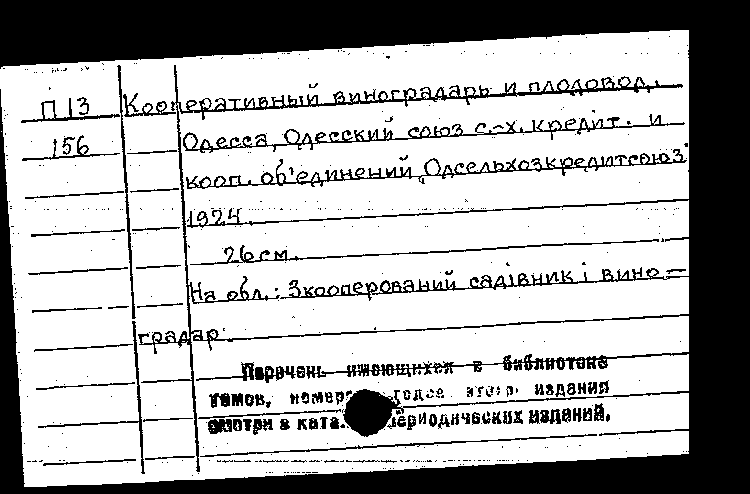 П 13 Кооперативный виноградарь и плодовод.
156 Одесса, Одесский союз с.-х. кредит. и
кооп. об'единений „Одсельхозкредитсоюз"
1924.
26 см.
На обл.: Зкооперований садівник і вино-
градар.
Перечень имеющихся в библиотеке
томов, номеров годов этого издания
смотри в ката. периодических изданий.